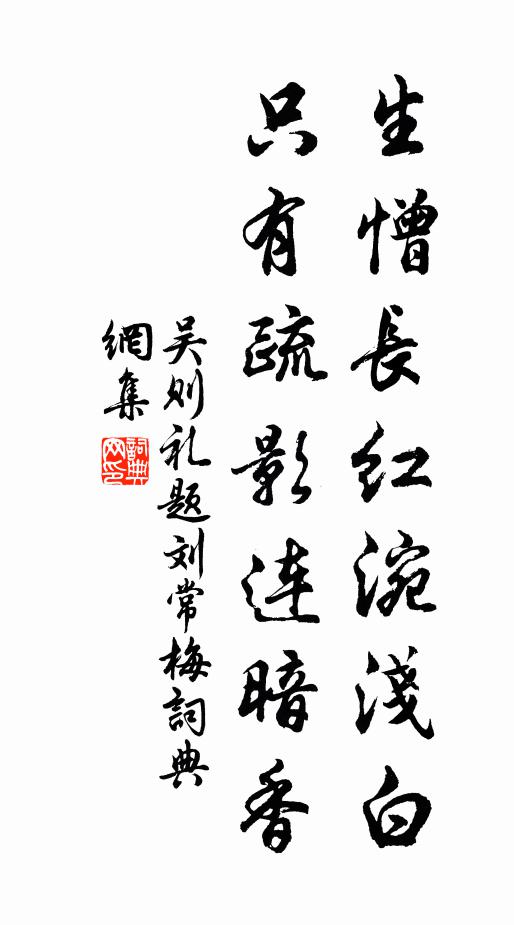 生憎長红涴淺白
只有疏影連暗香
吴则礼题刘常梅詞典
網集
詞典
网印